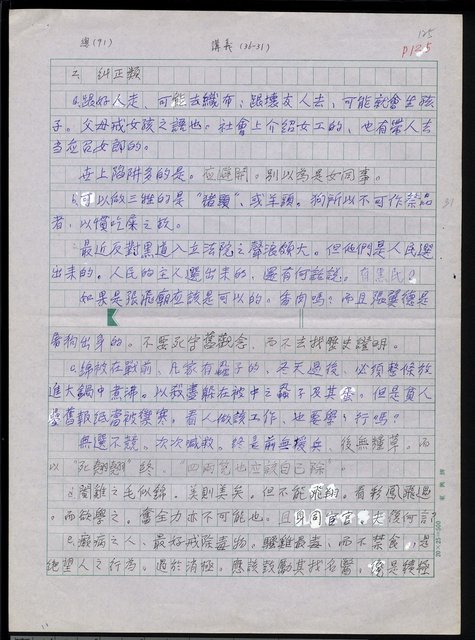 125
總(91) 講義(36-31) p125
二、糾正類
a.跟好人走、可能去織布、跟壞女人去、可能就會生孩
子。父母戒女孩之證也。社會上介紹女工的、也有帶人去
当应召女郎的。
世上陷阱多的是。应避開。別以為是女同事。
b.可以做三牲的是“猪頭”、或羊頭。狗所以不可作祭品
者、以慣吃屎之故。
最近反對黑道入立法院之聲浪頗大。但他們是人民選
出来的。人民的主人選出来的、還有何話說。
如果是張飛廟应該是可以的。香肉嗎？而且張翼德是
賣狗出身的。不要死守舊觀念、而不去找歷史證明。
c.綿被在戰前、凡家有蝨子的、冬天過後、必須整條放
進大鍋中煮沸。以殺盡躲在被中之蝨子及其蛋。但是貧人
舊報紙當被禦寒。看人做該工作、也要學、行嗎？
無選不競。次次喊救。終是前無援兵、後無糧草。而
以“死翹翹”終、“四兩也应該自己除”。
d.閹雞之毛似錦。美則美矣。但不能飛翔。看彩鳳飛過
。而欲學之。奮全力亦不可能也。且身同宦官、夫後何言？
e.癩病之人、最好戒除毒物。鵝雞最毒、而不禁食、是
絕望人之行為。過於消極。應該鼓勵其找名醫、像是積極
20×25=500